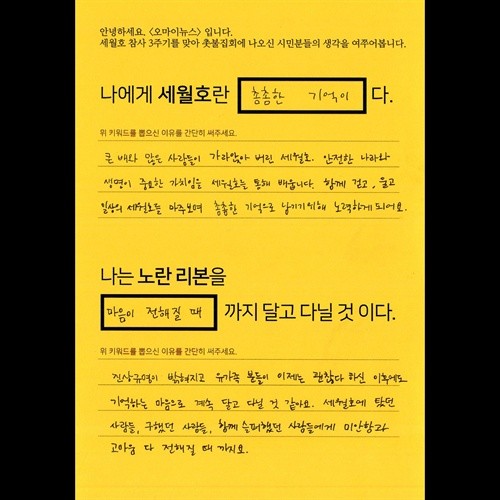 안녕하세요. <오마이뉴스> 입니다.
세월호 참사 3주기를 맞아 촛불집회에 나오신 시민분들의 생각을 여쭈어봅니다.
나에게 세월호란 촘촘한 기억이 다.
위 키워드를 뽑으신 이유를 간단히 써주세요.
큰 배와 많은 사람들이 가라앉아 버린 세월호. 안전한 나라와
생명이 중요한 가치임을 세월호를 통해 배웁니다. 함께 걷고, 울고
일상의 세월호를 마주보며 촘촘한 기억으로 남기기위해 노력하게되어요.
나는 노란 리본을
마음이 전해질 때 까지 달고 다닐 것 이다.
위 키워드를 뽑으신 이유를 간단히 써주세요.
진상규명이 밝혀지고 유가족 분들이 이제는 괜찮다 하신 이후에도
기억하는 마음으로 계속 달고 다닐 것 같아요. 세월호에 탔던
사람들, 구했던 사람들, 함께 슬퍼했던 사람들에게 미안함과
고마움 다 전해질 때 까지요.